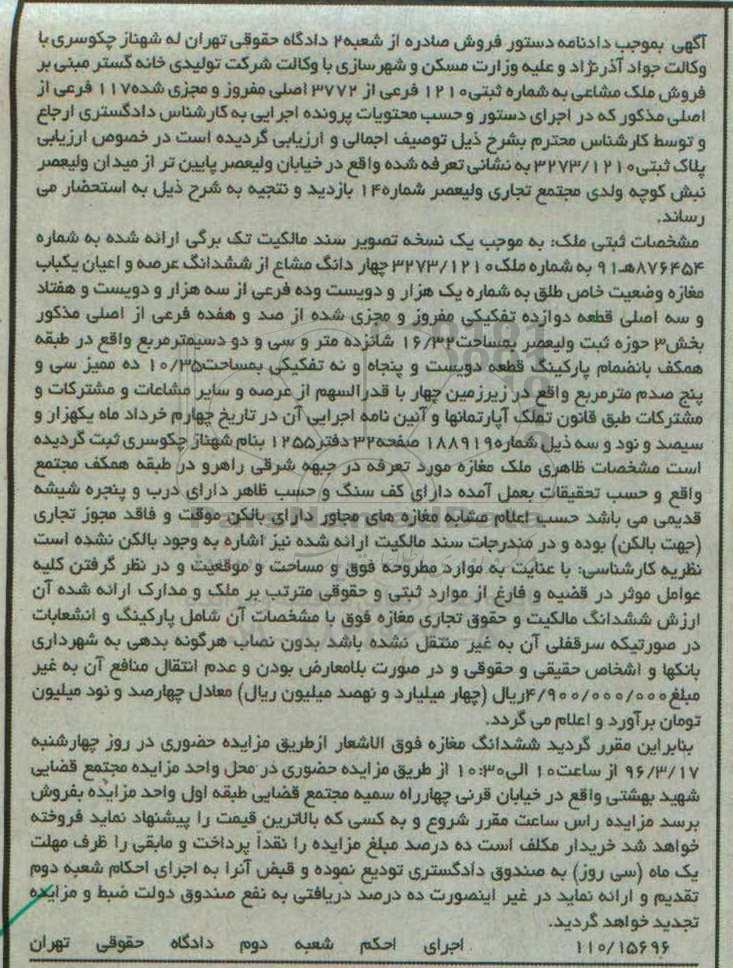 آگهی بموجب دادنامه دستور فروش صادره از شعبه۲ دادگاه حقوقی تهران له شهناز چکوسری با
وکالت جواد آذرنژاد و علیه وزارت مسکن و شهرسازی با وکالت شرکت تولیدی خانه گستر مبنی بر
فروش ملک مشاعی به شماره ثبتی۱۲۱۰ فرعی از ۳۷۷۲ اصلی مفروز و مجزی شده۱۱۷ فرعی از
اصلی مذکور که در اجرای دستور و حسب محتویات پرونده اجرایی به کارشناس دادگستری ارجاع
و توسط کارشناس محترم بشرح ذیل توصیف اجمالی و ارزیابی گردیده است در خصوص ارزیابی
پلاک ثبتی۳۲۷۳/۱۲۱۰ به نشانی تعرفه شده واقع در خیابان ولیعصر پایین تر از میدان ولیعصر
نبش کوچه ولدی مجتمع تجاری ولیعصر شماره۱۴ بازدید و نتجیه به شرح ذیل به استحضار می
رساند.
مشخصات ثبتی ملک: به موجب یک نسخه تصویر سند مالکیت تک برگی ارائه شده به شماره
۸۷۶۴۵۴هـ۹۱ به شماره ملک۳۲۷۳/۱۲۱۰ چهار دانگ مشاع از ششدانگ عرصه و اعیان یکباب
مغازه وضعیت خاص طلق به شماره یک هزار و دویست وده فرعی از سه هزار و دویست و هفتاد
و سه اصلی قطعه دوازده تفکیکی مفروز و مجزی شده از صد و هفده فرعی از اصلی مذکور
بخش۳ حوزه ثبت ولیعصر بمساحت۱۶/۳۲ شانزده متر و سی و دو دسیمترمربع واقع در طبقه
همکف بانضمام پارکینگ قطعه دویست و پنجاه و نه تفکیکی بمساحت۱۰/۳۵ ده ممیز سی و
پنج صدم مترمربع واقع در زیرزمین چهار با قدرالسهم از عرصه و سایر مشاعات و مشترکات و
مشترکات طبق قانون تملک آپارتمانها و آئین نامه اجرایی آن در تاریخ چهارم خرداد ماه یکهزار و
سیصد و نود و سه ذیل شماره۱۸۸۹۱۹ صفحه۳۲ دفتر۱۲۵۵ بنام شهناز چکوسری ثبت گردیده
است مشخصات ظاهری ملک مغازه مورد تعرفه در جبهه شرقی راهرو در طبقه همکف مجتمع
واقع و حسب تحقیقات بعمل آمده دارای کف سنگ و حسب ظاهر دارای درب و پنجره شیشه
قدیمی می باشد حسب اعلام مشابه مغازه های مجاور دارای بالکن موقت و فاقد مجوز تجاری
(جهت بالکن) بوده و در مندرجات سند مالکیت ارائه شده نیز اشاره به وجود بالکن نشده است
نظریه کارشناسی: با عنایت به موارد مطروحه فوق و مساحت و موقعیت و در نظر گرفتن کلیه
عوامل موثر در قضیه و فارغ از موارد ثبتی و حقوقی مترتب بر ملک و مدارک ارائه شده آن
ارزش ششدانگ مالکیت و حقوق تجاری مغازه فوق با مشخصات آن شامل پارکینگ و انشعابات
در صورتیکه سرقفلی آن به غیر منتقل نشده باشد بدون نصاب هرگونه بدهی به شهرداری
بانکها و اشخاص حقیقی و حقوقی و در صورت بلامعارض بودن و عدم انتقال منافع آن به غیر
مبلغ۴/۹۰۰/۰۰۰/۰۰۰ریال (چهار میلیارد و نهصد میلیون ریال) معادل چهارصد و نود میلیون
تومان برآورد و اعلام می گردد.
بنابراین مقرر گردید ششدانگ مغازه فوق الاشعار ازطریق مزایده حضوری در روز چهارشنبه
۹۶/۳/۱۷ از ساعت۱۰ الی۱۰:۳۰ از طریق مزایده حضوری در محل واحد مزایده مجتمع قضایی
شهید بهشتی واقع در خیابان قرنی چهارراه سمیه مجتمع قضایی طبقه اول واحد مزایده بفروش
برسد مزایده راس ساعت مقرر شروع و به کسی که بالاترین قیمت را پیشنهاد نماید فروخته
خواهد شد خریدار مکلف است ده درصد مبلغ مزایده را نقداً پرداخت و مابقی را ظرف مهلت
یک ماه (سی روز) به صندوق دادگستری تودیع نموده و قبض آنرا به اجرای احکام شعبه دوم
تقدیم و ارائه نماید در غیر اینصورت ده درصد دریافتی به نفع صندوق دولت ضبط و مزایده
تجدید خواهد گردید.
۱۱۰/۱۵۶۹۶ اجرای احکم شعبه دوم دادگاه حقوقی تهران